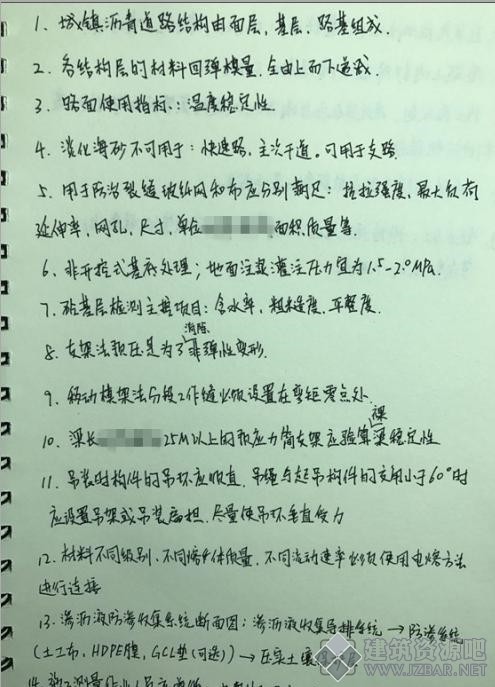 1、城镇沥青道路结构由面层，基层，路基组成.
2、各结构层的材料回弹模量，全由上而下递减.
3、路面使用指标：温度稳定性.
4、淡化海砂不可用于：快速路，主次干道。可用于支路
5、用于防治裂缝玻纤网和布应分别满足：抗拉强度，最大负荷
延伸率，网孔，尺寸，单位 面积质量等
6、非开挖式基底处理；地面注浆灌注压力宜为1.5-2.0MPa.
7、砼基层检测主要项目：含水率，粗糙度，平整度.
8、支架法预压是为了消除非弹性变形.
9、移动模架法分段工作缝必须设置在弯矩零点处.
10、梁长 25M以上的预应力简支梁应验算裸梁稳定性
11、吊装时构件的吊环应顺直，吊绳与起吊构件的交角小于60°时
应设置吊架或吊装扁担，尽量使吊环垂直受力
12、材料不同级别、不同熔体质量，不同流动速率必须使用电熔方法
进行连接
13、渗沥液防渗收集系统断面图：渗沥液收集导排系统→防渗系统
(土工布，HDPE膜，GCL垫(可选))→压实土壤
建筑资源吧
WWW.JZBAR.NET